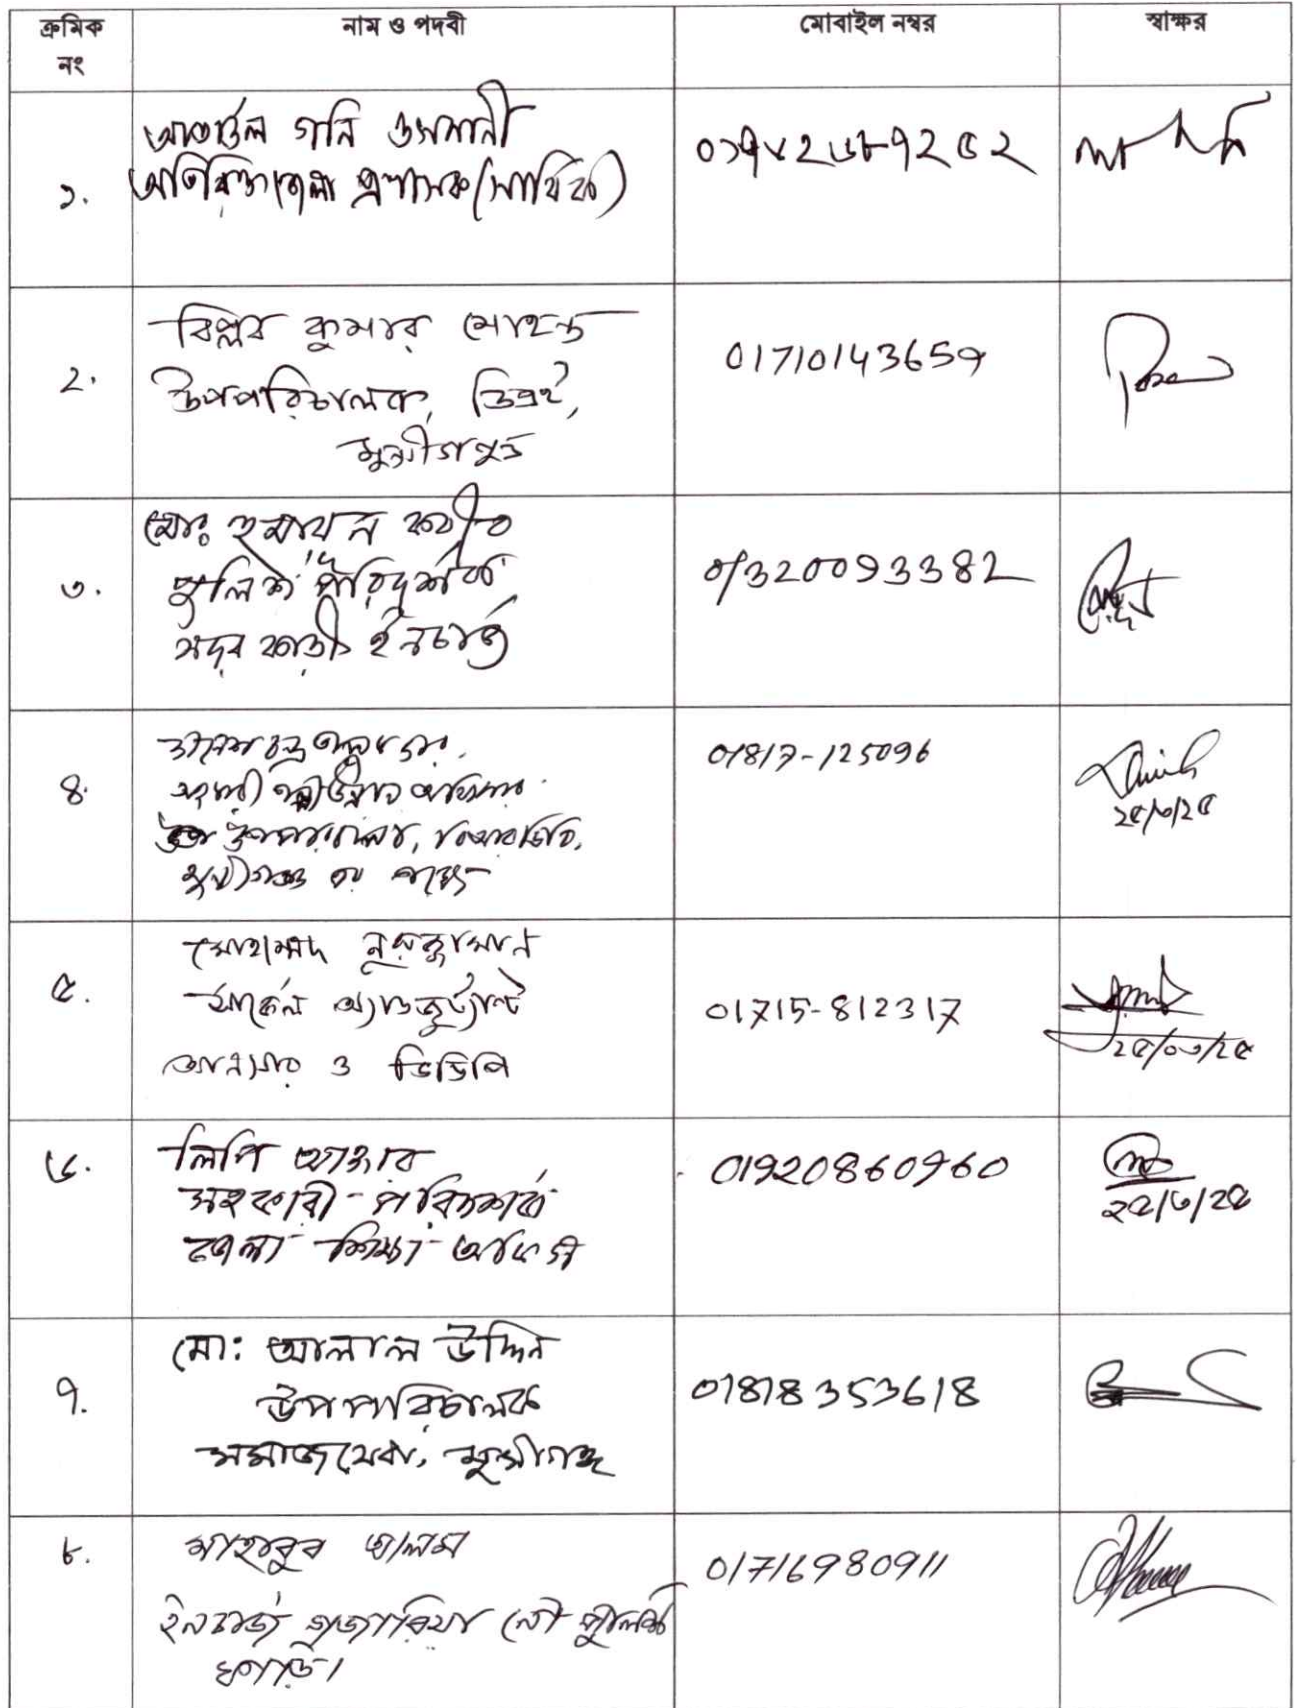 ক্রমিক নং
নাম ও পদবী
মোবাইল নম্বর
স্বাক্ষর
১.
গনি ওসমানী
অতিরিক্ত জেলা প্রশাসক (সার্বিক)
২.
বিপ্লব কুমার মোহন্ত
উপপরিচালক,
মুন্সীগঞ্জ
01710143659
৩.
মোঃ হুমায়ুন কবীর
পুলিশ পরিদর্শক
সদর ফাড়ী ইনচার্জ
01320093382
৪.
মুন্সীগঞ্জ এর পক্ষে
01817-125096
২৫/৩/২৫
৫.
মোহাম্মদ নুরুজ্জামান
সার্কেল অ্যাডজুট্যান্ট
আনসার ও ভিডিপি
01715-812317
২৫/০৩/২৫
৬.
লিপি আক্তার
সহকারী পরিদর্শক
জেলা শিক্ষা অফিস
01920860960
২৫/৩/২৫
৭.
মো: আলাল উদ্দিন
উপপরিচালক
সমাজসেবা, মুন্সীগঞ্জ
01818353618
৮.
মাহাবুব আলম
ইনচার্জ গজারিয়া নৌ পুলিশ
ফাড়ি।
01716980911